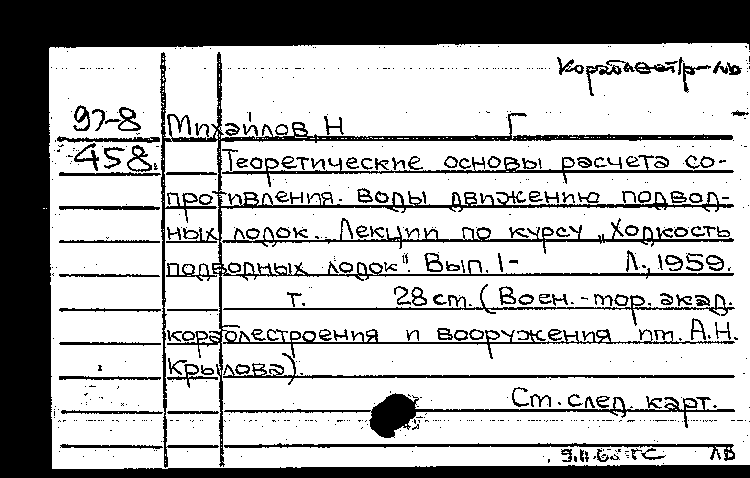 Кораблестр-
97-8
Михайлов, Н Г
458.
Теоретические основы расчета со-
противления. воды движению подвод-
ных лодок. Лекции по курсу „Ходкость
подводных лодок". Вып. 1- Л., 1959.
т. 28 ст. (Воен.-мор. акад.
кораблестроения и вооружения им. А.Н.
Крылова).
Ст. след. карт.
ЛВ